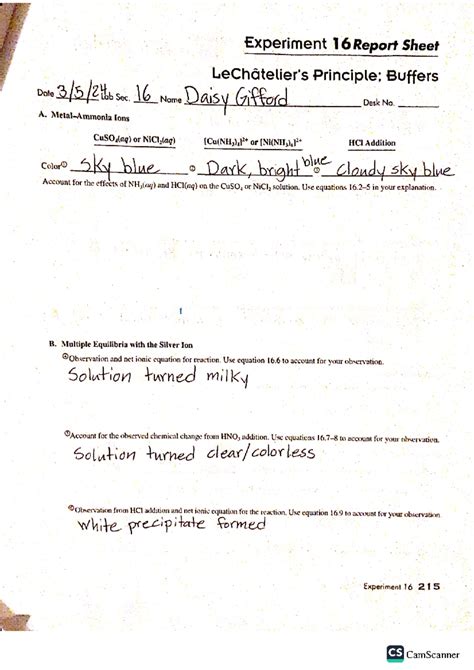 Experiment 16 Report Sheet
LeChâtelier's Principle; Buffers
Date 3/5/24 Lab Sec. 16 Name Daisy Gifford Desk No.
A. Metal–Ammonia Ions
CuSO₄(aq) or NiCl₂(aq) [Cu(NH₃)₄]²⁺ or [Ni(NH₃)₆]²⁺ HCl Addition
Color① Sky blue ② Dark, bright blue ③ cloudy sky blue
Account for the effects of NH₃(aq) and HCl(aq) on the CuSO₄ or NiCl₂ solution. Use equations 16.2–5 in your explanation.
B. Multiple Equilibria with the Silver Ion
Observation and net ionic equation for reaction. Use equation 16.6 to account for your observation.
Solution turned milky
Account for the observed chemical change from HNO₃ addition. Use equations 16.7–8 to account for your observation.
Solution turned clear/colorless
Observation from HCl addition and net ionic equation for the reaction. Use equation 16.9 to account for your observation.
White precipitate formed
Experiment 16 215
CS CamScanner